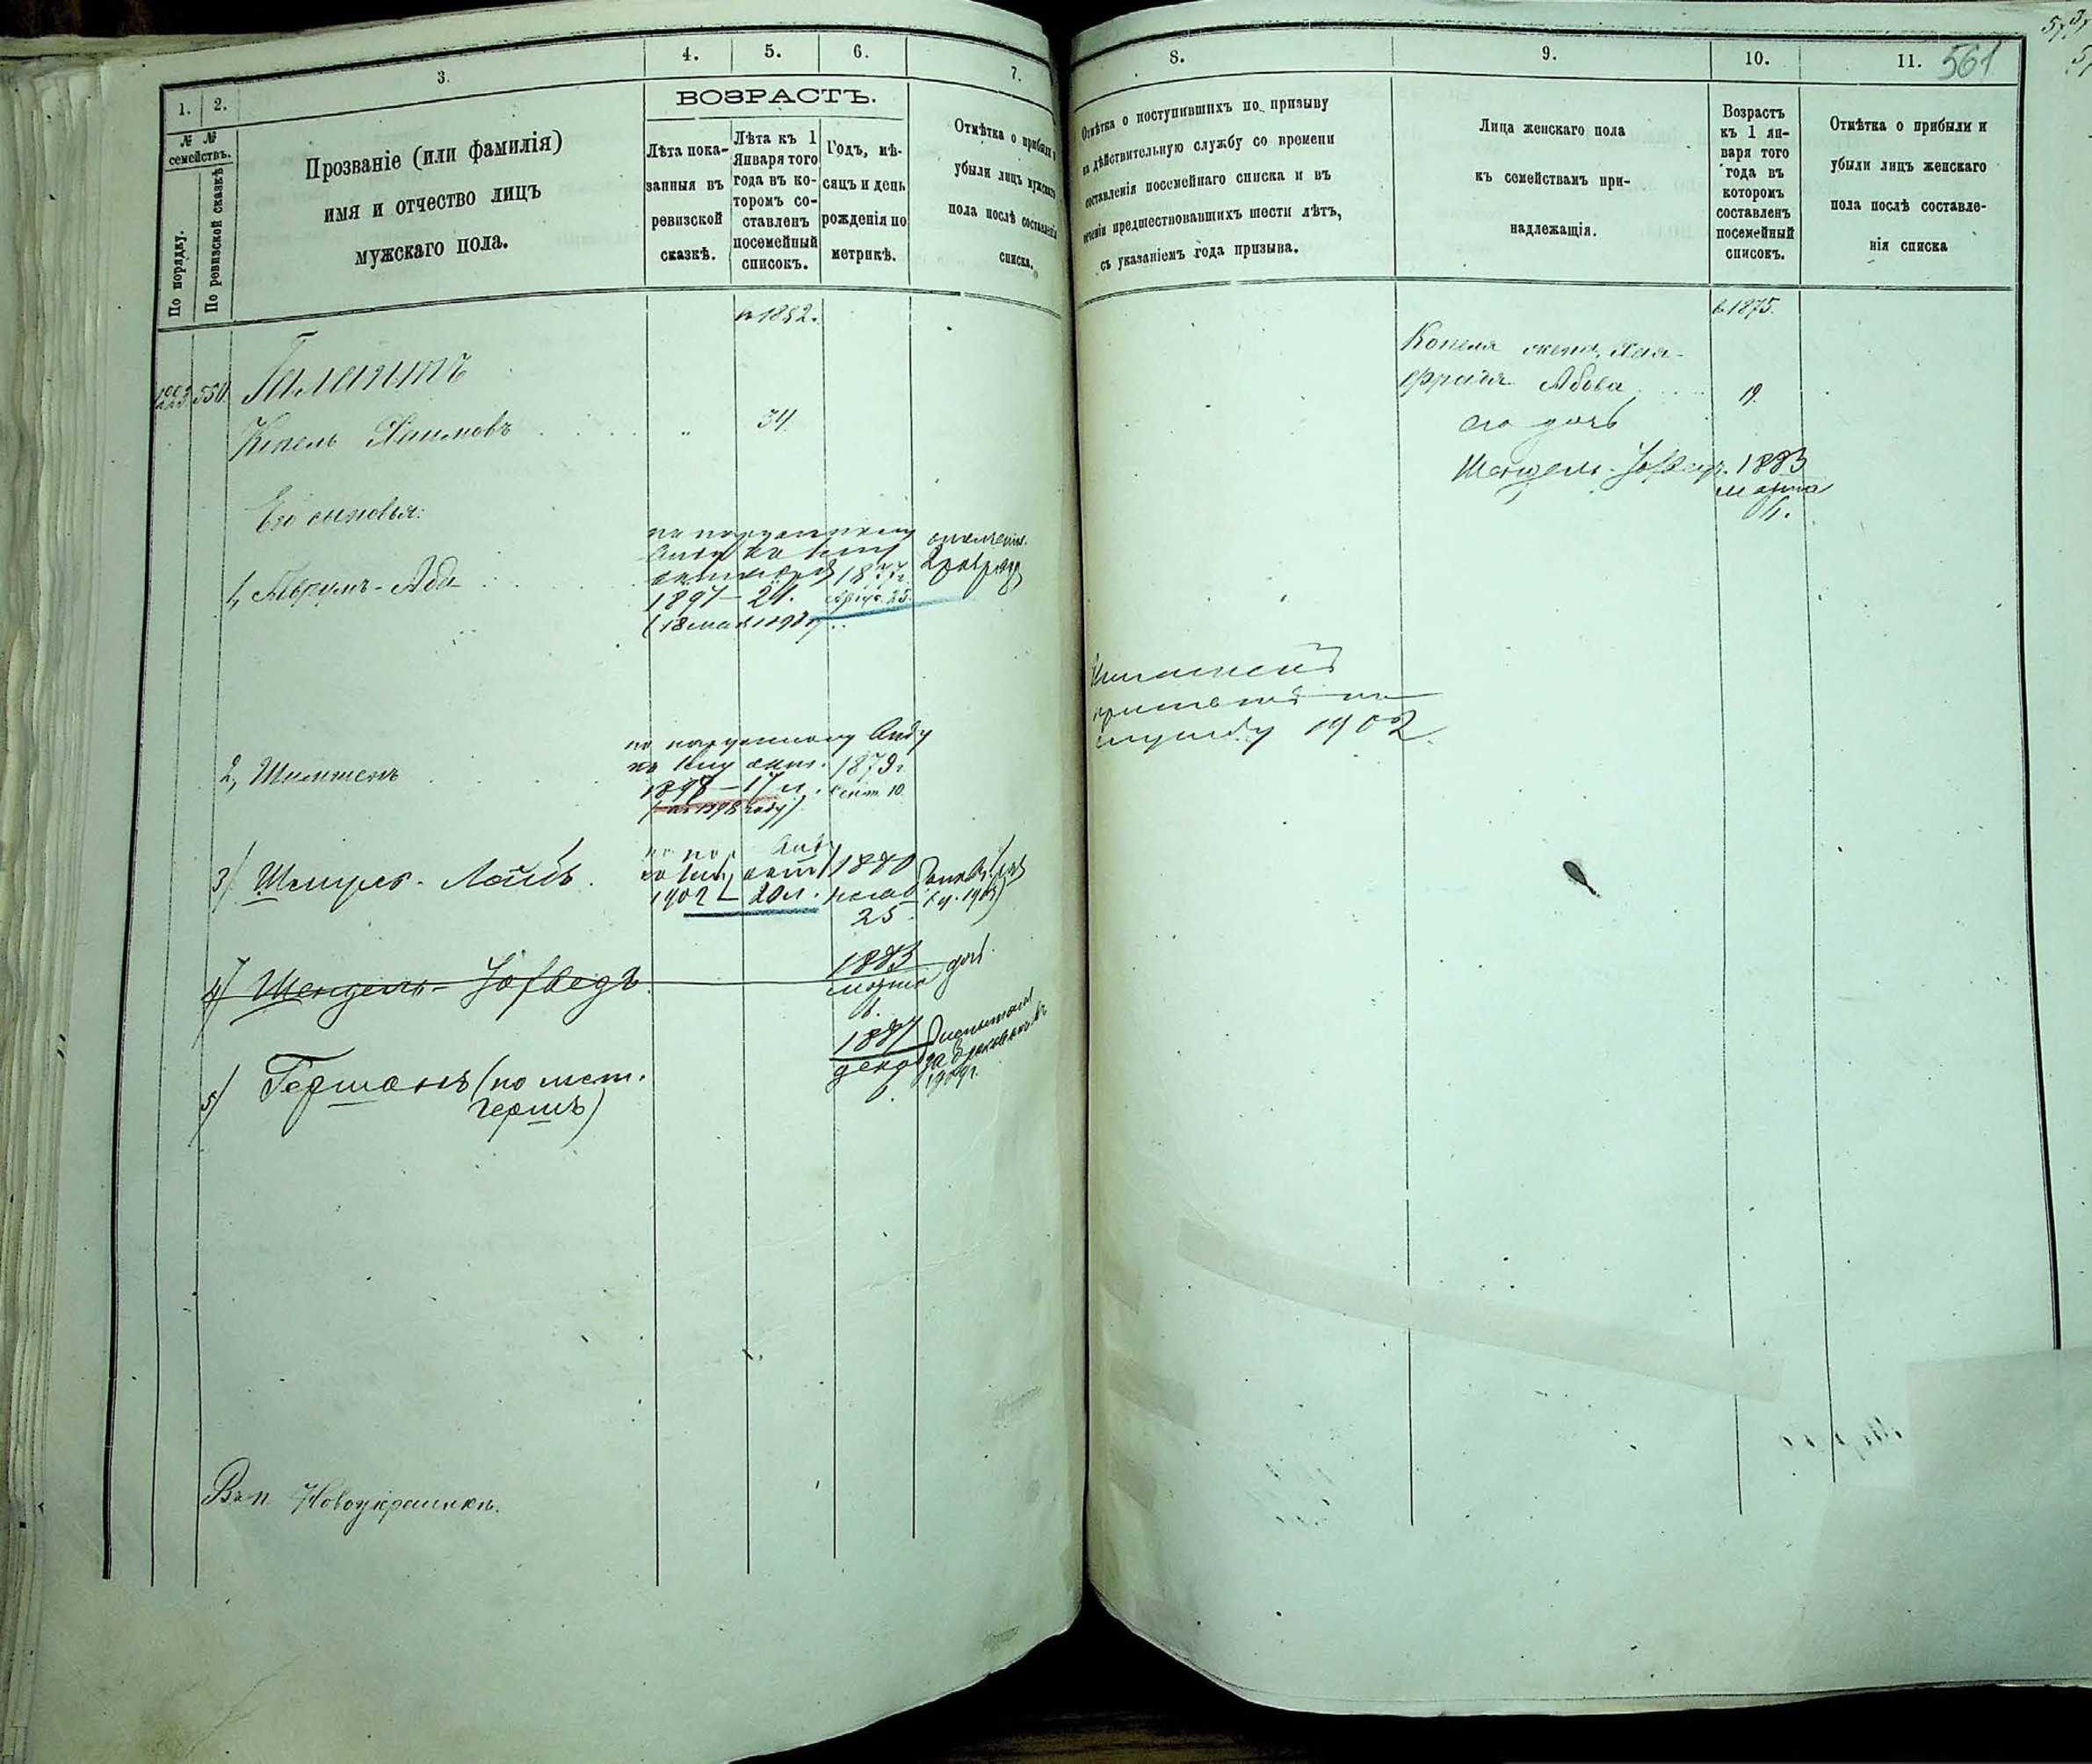 1.
2.
3.
4.
5.
6.
7.
№ №
семействъ.
По порядку.
По ревизской сказкѣ
Прозваніе (или фамилія)
имя и отчество лицъ
мужскаго пола.
ВОЗРАСТЪ.
Лѣта пока-
занныя въ
ревизской
сказкѣ.
Лѣта къ 1
Января того
года въ ко-
торомъ со-
ставленъ
посемейный
списокъ.
Годъ, мѣ-
сяцъ и день
рожденія по
метрикѣ.
Отмѣтка о прибыли и
убыли лицъ мужскаго
пола послѣ составленія
списка.
1882.
550.
Галантъ
Копель Хаимовъ
34.
Его сыновья:
1, Аврумъ-Аба
по наружному
виду къ 1му
октября
1897 – 21.
1877 г.
25.
2 разряд
2, Шимшонъ
по наружному виду
къ 1му окт.
1898 – 17 л.
1879 г.
Сент. 10.
3) Шмуль-Лейбъ.
1902 – 20 л.
1880
25
4) Шендель-Иохведъ.
1883
марта
6.
дочь
5) Германъ (по мет.
Гершъ)
1887
декаб
6.
1909 г.
Въ п. Новоукраинкѣ.
8.
9.
10.
11.
561
Отмѣтка о поступившихъ по призыву
на дѣйствительную службу со времени
составленія посемейнаго списка и въ
теченіи предшествовавшихъ шести лѣтъ,
съ указаніемъ года призыва.
Лица женскаго пола
къ семействамъ при-
надлежащія.
Возрастъ
къ 1 ян-
варя того
года въ
которомъ
составленъ
посемейный
списокъ.
Отмѣтка о прибыли и
убыли лицъ женскаго
пола послѣ составле-
нія списка
1875.
Копеля жена, Хая-
Фрейда Абова
19.
его дочь
Шендель-Иохведъ.
1883
марта
6.
Шимшонъ
принятъ на
службу 1902